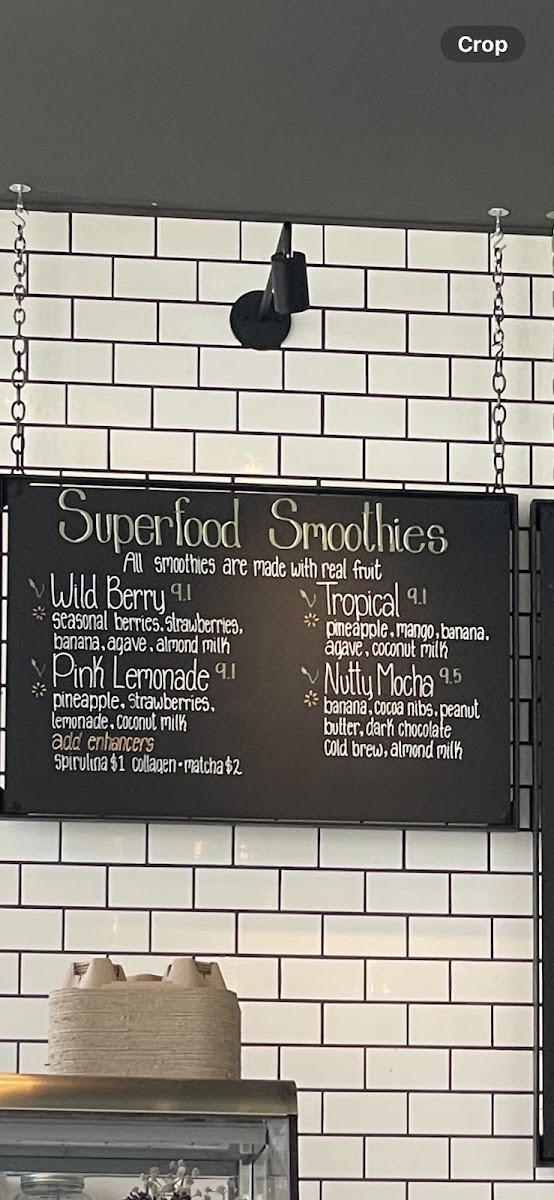 Crop
Superfood Smoothies
All smoothies are made with real fruit
Wild Berry 9.1
seasonal berries, strawberries,
banana, agave, almond milk
Pink Lemonade 9.1
pineapple, strawberries,
lemonade, coconut milk
add enhancers
spirulina $1 collagen • matcha $2
Tropical 9.1
pineapple, mango, banana,
agave, coconut milk
Nutty Mocha 9.5
banana, cocoa nibs, peanut
butter, dark chocolate
cold brew, almond milk